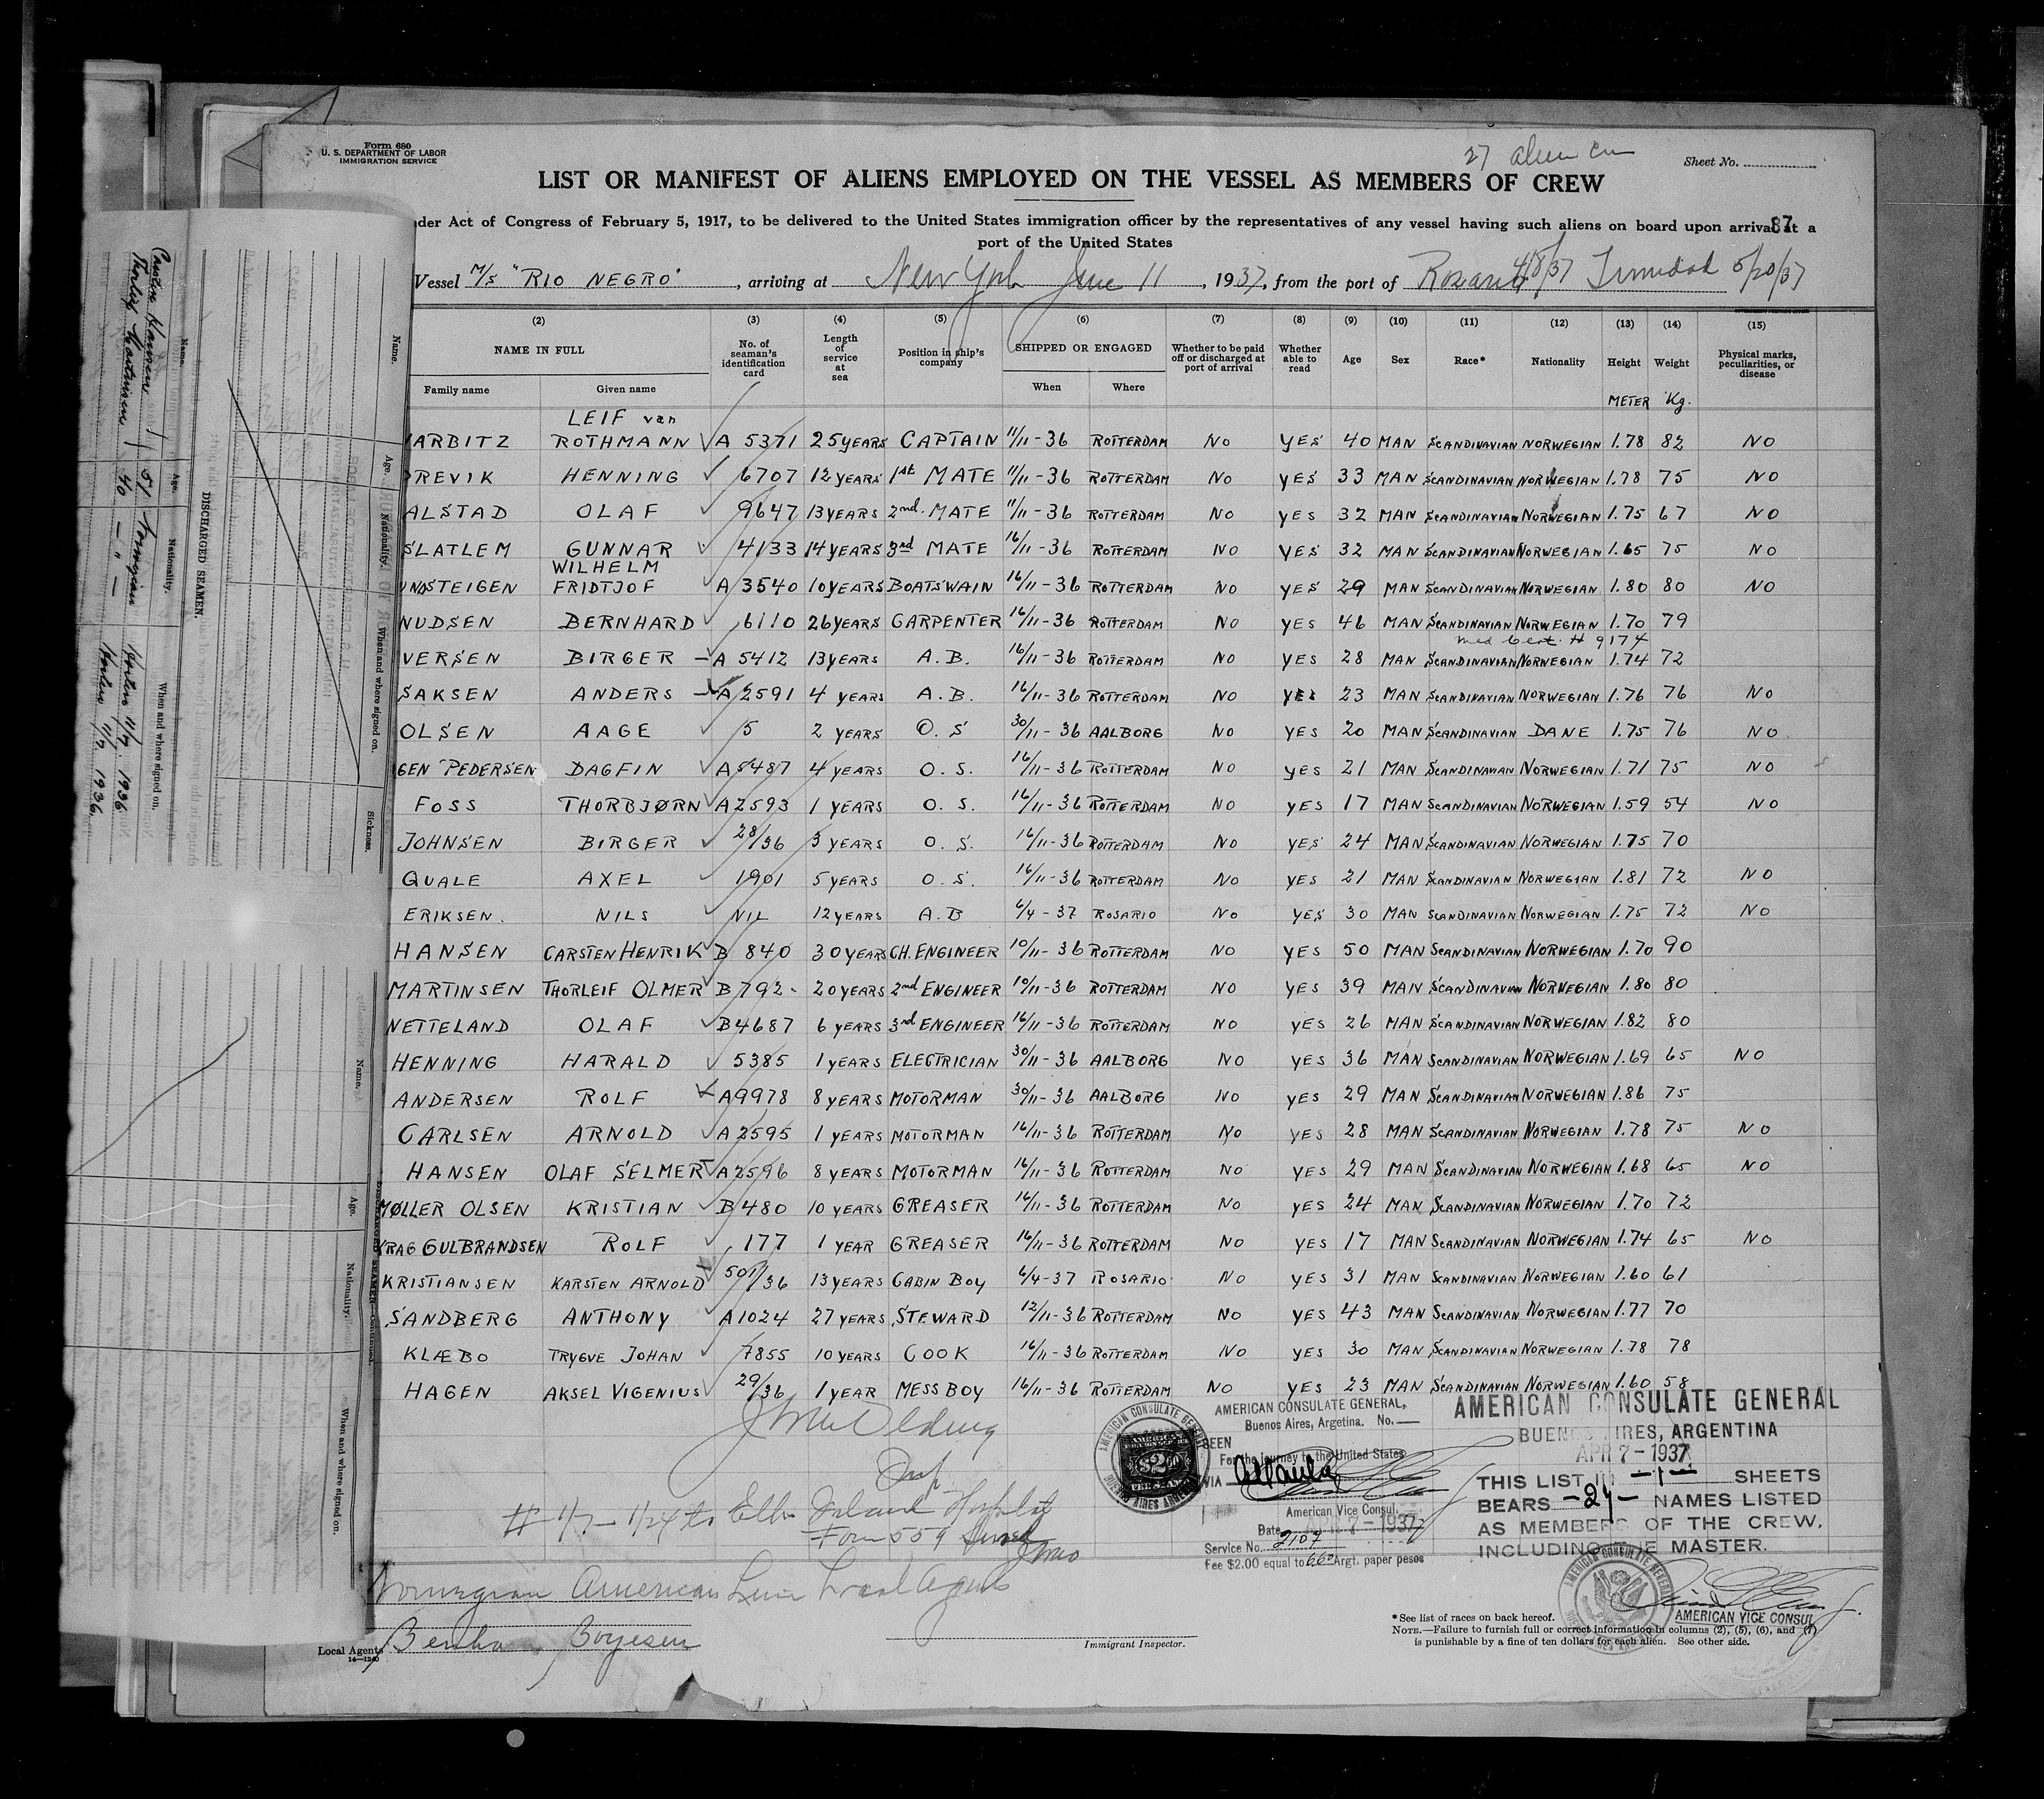 Form 680
U. S. DEPARTMENT OF LABOR
IMMIGRATION SERVICE
27 alien
Sheet No.
LIST OR MANIFEST OF ALIENS EMPLOYED ON THE VESSEL AS MEMBERS OF CREW
nder Act of Congress of February 5, 1917, to be delivered to the United States immigration officer by the representatives of any vessel having such aliens on board upon arrival at a
87
port of the United States
Vessel M/S "RIO NEGRO", arriving at New York June 11, 1937, from the port of Rosario 4/8/37 Trinidad 5/20/37
(2) (3) (4) (5) (6) (7) (8) (9) (10) (11) (12) (13) (14) (15)
NAME IN FULL No. of seaman's identification card Length of service at sea Position in ship's company SHIPPED OR ENGAGED Whether to be paid off or discharged at port of arrival Whether able to read Age Sex Race* Nationality Height Weight Physical marks, peculiarities, or disease
Family name Given name When Where
METER Kg.
LEIF van
ARBITZ ROTHMANN A 5371 25 YEARS CAPTAIN 11/11-36 ROTTERDAM NO YES 40 MAN SCANDINAVIAN NORWEGIAN 1.78 82 NO
REVIK HENNING 6707 12 YEARS 1st MATE 11/11-36 ROTTERDAM NO YES 33 MAN SCANDINAVIAN NORWEGIAN 1.78 75 NO
ALSTAD OLAF 9647 13 YEARS 2nd. MATE 11/11-36 ROTTERDAM NO YES 32 MAN SCANDINAVIAN NORWEGIAN 1.75 67 NO
SLATLEM GUNNAR 4133 14 YEARS 3rd MATE 16/11-36 ROTTERDAM NO YES 32 MAN SCANDINAVIAN NORWEGIAN 1.65 75 NO
WILHELM
UNDSTEIGEN FRIDTJOF A 3540 10 YEARS BOATSWAIN 16/11-36 ROTTERDAM NO YES 29 MAN SCANDINAVIAN NORWEGIAN 1.80 80 NO
NUDSEN BERNHARD 6110 26 YEARS CARPENTER 16/11-36 ROTTERDAM NO YES 46 MAN SCANDINAVIAN NORWEGIAN 1.70 79
med Cert. # 9174
VERSEN BIRGER A 5412 13 YEARS A.B. 16/11-36 ROTTERDAM NO YES 28 MAN SCANDINAVIAN NORWEGIAN 1.74 72
SAKSEN ANDERS A 2591 4 YEARS A.B. 16/11-36 ROTTERDAM NO YES 23 MAN SCANDINAVIAN NORWEGIAN 1.76 76 NO
OLSEN AAGE 5 2 YEARS O.S 30/11-36 AALBORG NO YES 20 MAN SCANDINAVIAN DANE 1.75 76 NO
GEN PEDERSEN DAGFIN A 5487 4 YEARS O.S. 16/11-36 ROTTERDAM NO YES 21 MAN SCANDINAVIAN NORWEGIAN 1.71 75 NO
FOSS THORBJØRN A 2593 1 YEARS O.S. 16/11-36 ROTTERDAM NO YES 17 MAN SCANDINAVIAN NORWEGIAN 1.59 54 NO
JOHNSEN BIRGER 28/36 3 YEARS O.S. 16/11-36 ROTTERDAM NO YES 24 MAN SCANDINAVIAN NORWEGIAN 1.75 70
QUALE AXEL 1901 5 YEARS O.S. 16/11-36 ROTTERDAM NO YES 21 MAN SCANDINAVIAN NORWEGIAN 1.81 72 NO
ERIKSEN. NILS NIL 12 YEARS A.B 6/4-37 ROSARIO NO YES 30 MAN SCANDINAVIAN NORWEGIAN 1.75 72 NO
HANSEN CARSTEN HENRIK B 840 30 YEARS CH. ENGINEER 10/11-36 ROTTERDAM NO YES 50 MAN SCANDINAVIAN NORWEGIAN 1.70 90
MARTINSEN THORLEIF OLMER B 792- 20 YEARS 2nd ENGINEER 10/11-36 ROTTERDAM NO YES 39 MAN SCANDINAVIAN NORWEGIAN 1.80 80
NETTELAND OLAF B 4687 6 YEARS 3rd ENGINEER 16/11-36 ROTTERDAM NO YES 26 MAN SCANDINAVIAN NORWEGIAN 1.82 80
HENNING HARALD 5385 1 YEARS ELECTRICIAN 30/11-36 AALBORG NO YES 36 MAN SCANDINAVIAN NORWEGIAN 1.69 65 NO
ANDERSEN ROLF A 9978 8 YEARS MOTORMAN 30/11-36 AALBORG NO YES 29 MAN SCANDINAVIAN NORWEGIAN 1.86 75
CARLSEN ARNOLD A 2595 1 YEARS MOTORMAN 16/11-36 ROTTERDAM NO YES 28 MAN SCANDINAVIAN NORWEGIAN 1.78 75 NO
HANSEN OLAF SELMER A 2596 8 YEARS MOTORMAN 16/11-36 ROTTERDAM NO YES 29 MAN SCANDINAVIAN NORWEGIAN 1.68 65 NO
MØLLER OLSEN KRISTIAN B 480 10 YEARS GREASER 16/11-36 ROTTERDAM NO YES 24 MAN SCANDINAVIAN NORWEGIAN 1.70 72
KRAG GULBRANDSEN ROLF 177 1 YEAR GREASER 16/11-36 ROTTERDAM NO YES 17 MAN SCANDINAVIAN NORWEGIAN 1.74 65 NO
KRISTIANSEN KARSTEN ARNOLD 501/36 13 YEARS CABIN BOY 6/4-37 ROSARIO NO YES 31 MAN SCANDINAVIAN NORWEGIAN 1.60 61
SANDBERG ANTHONY A 1024 27 YEARS STEWARD 12/11-36 ROTTERDAM NO YES 43 MAN SCANDINAVIAN NORWEGIAN 1.77 70
KLÆBO TRYGVE JOHAN 7855 10 YEARS COOK 16/11-36 ROTTERDAM NO YES 30 MAN SCANDINAVIAN NORWEGIAN 1.78 78
HAGEN AKSEL VIGENIUS 29/36 1 YEAR MESS BOY 16/11-36 ROTTERDAM NO YES 23 MAN SCANDINAVIAN NORWEGIAN 1.60 58
# 1/7 - 1/24 to Ellis Island Hospital
Form 559 Served
Norwegian American Line Local Agents
Local Agents Benham Boyesen
14-1240
Immigrant Inspector.
AMERICAN CONSULATE GENERAL,
Buenos Aires, Argetina. No.
SEEN
For the journey to the United States
VIA
American Vice Consul.
Date APR 7 - 1937
Service No. 2107
Fee $2.00 equal to Argt. paper pesos
AMERICAN CONSULATE GENERAL
BUENOS AIRES, ARGENTINA
APR 7 - 1937
THIS LIST IN -1- SHEETS
BEARS -27- NAMES LISTED
AS MEMBERS OF THE CREW,
INCLUDING THE MASTER.
AMERICAN VICE CONSUL
*See list of races on back hereof.
NOTE.—Failure to furnish full or correct information in columns (2), (5), (6), and (7)
is punishable by a fine of ten dollars for each alien. See other side.
DISCHARGED SEAMEN.
Name. Age. Nationality. When and where signed on. Sickness.
Hansen 51 Norwegian Horten 11/7 1936
Thorleif Martinsen 40 - " - Horten 11/7 1936.
DISCHARGED SEAMEN—Continued.
Name. Age. Nationality. When and where signed on.